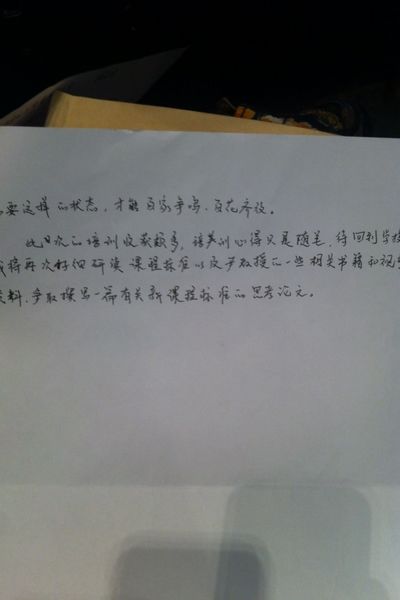 要这样的状态，才能百家争鸣、百花齐放。
此次的培训收获颇多，该培训心得只是随笔，待回到学校
我将再次仔细研读课程标准以及尹教授的一些相关书籍和视
资料，争取撰写一篇有关新课程标准的思考论文。